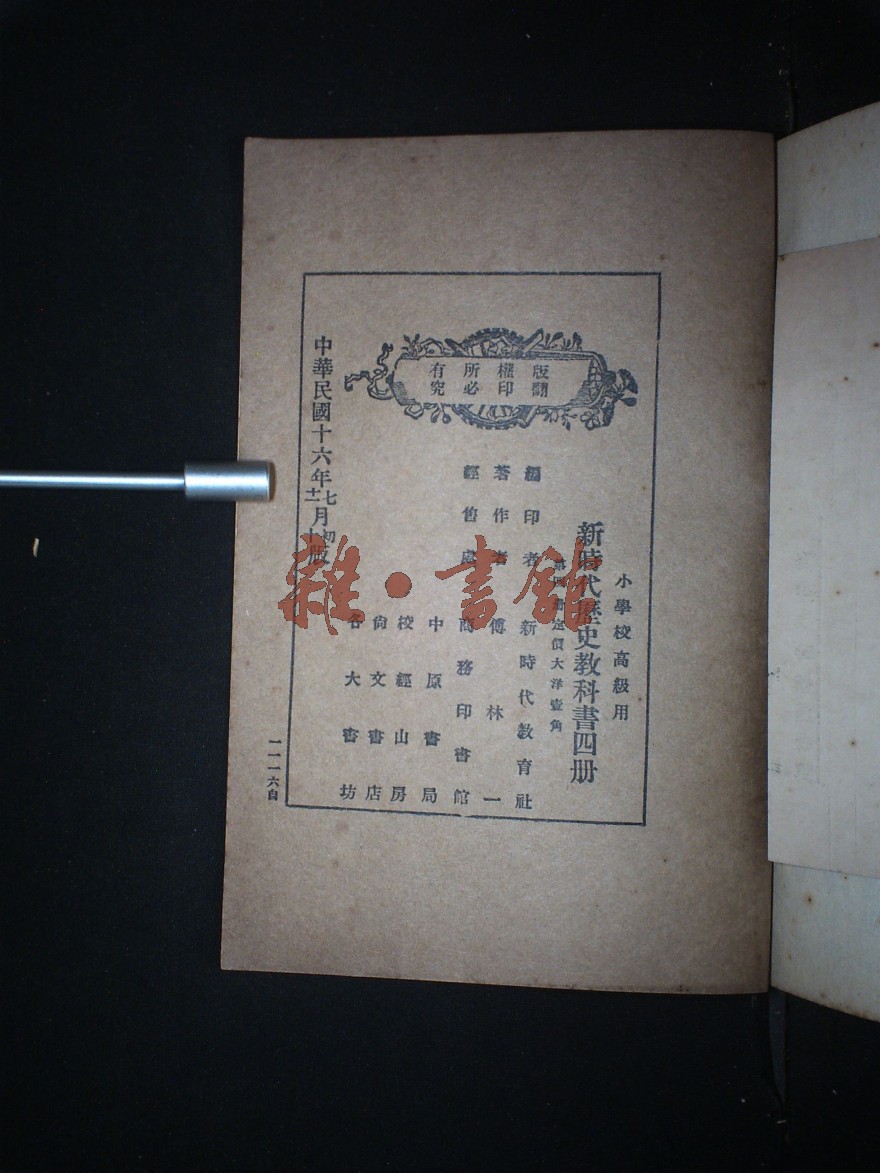 小學校高級用
新時代歷史教科書四册
第四册定價大洋壹角
版權所有
翻印必究
編印者 新時代教育社
著作者 傅林一
經售處 商務印書館
中原書局
校經山房
尙文書店
各大書坊
中華民國十六年七月初版
十二月十版
一一一六自
雜·書館